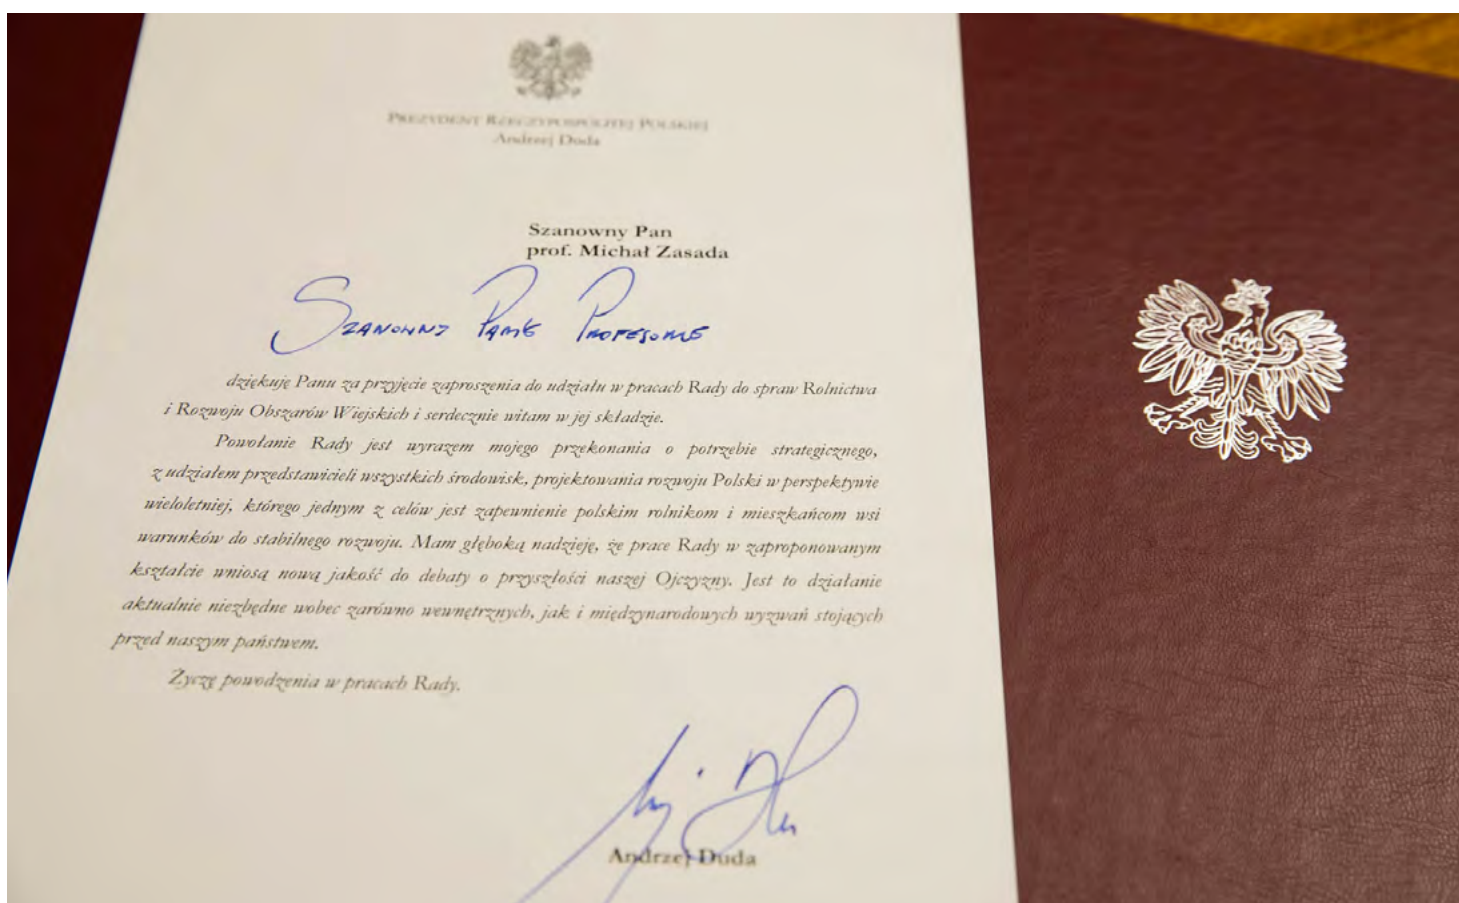 PREZYDENT RZECZYPOSPOLITEJ POLSKIEJ
Andrzej Duda
Szanowny Pan
prof. Michał Zasada
SZANOWNY PANIE PROFESORZE
dziękuję Panu za przyjęcie zaproszenia do udziału w pracach Rady do spraw Rolnictwa
i Rozwoju Obszarów Wiejskich i serdecznie witam w jej składzie.
Powołanie Rady jest wyrazem mojego przekonania o potrzebie strategicznego,
z udziałem przedstawicieli wszystkich środowisk, projektowania rozwoju Polski w perspektywie
wieloletniej, którego jednym z celów jest zapewnienie polskim rolnikom i mieszkańcom wsi
warunków do stabilnego rozwoju. Mam głęboką nadzieję, że prace Rady w zaproponowanym
kształcie wniosą nową jakość do debaty o przyszłości naszej Ojczyzny. Jest to działanie
aktualnie niezbędne wobec zarówno wewnętrznych, jak i międzynarodowych wyzwań stojących
przed naszym państwem.
Życzę powodzenia w pracach Rady.
Andrzej Duda